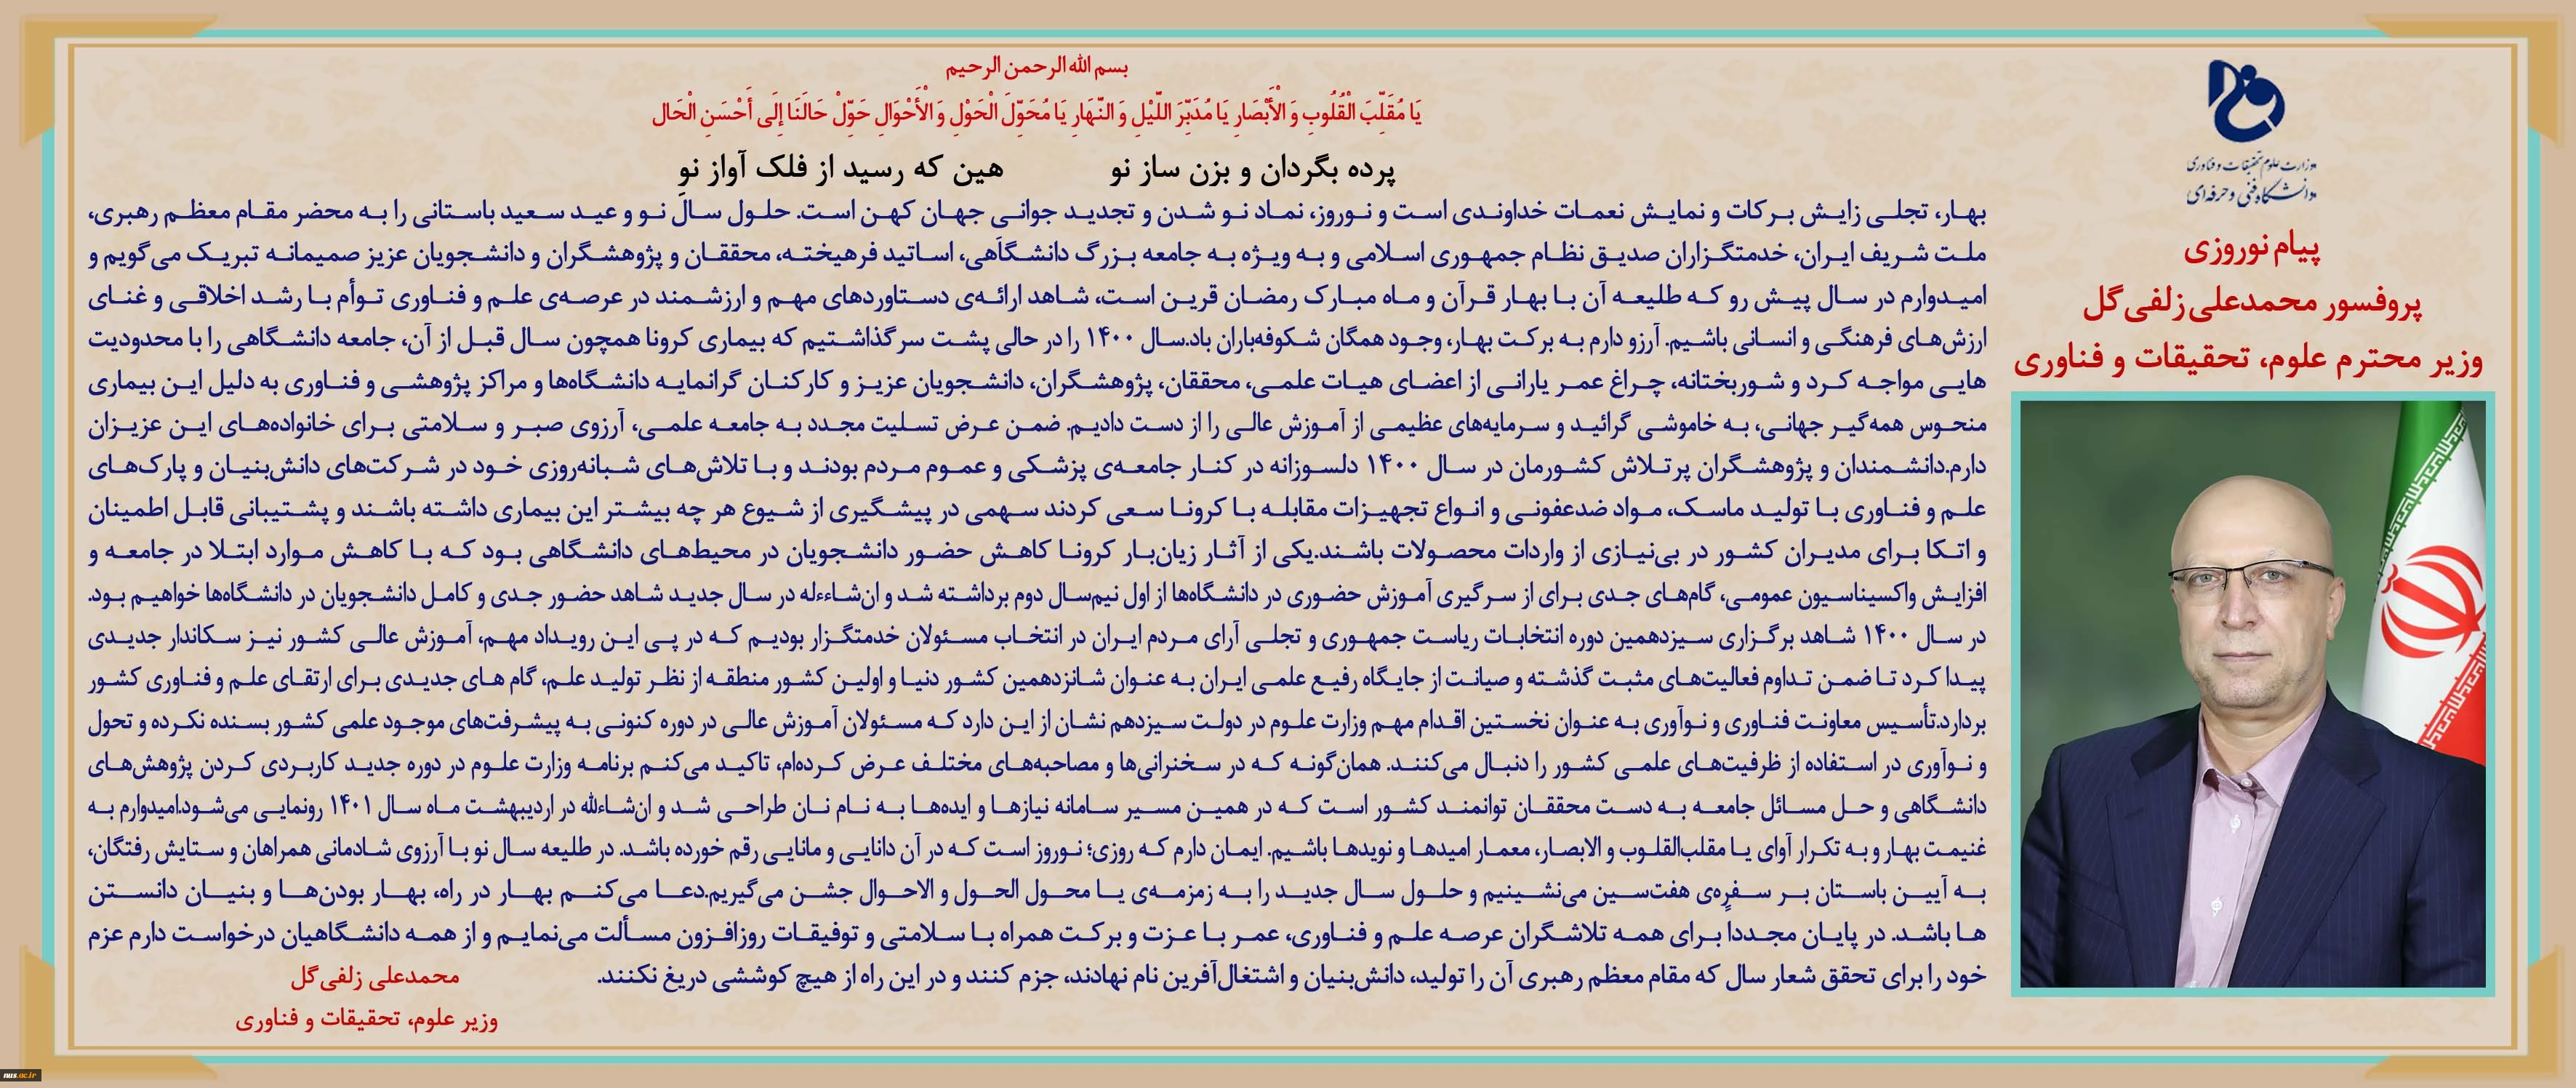 بسم الله الرحمن الرحیم
يَا مُقَلِّبَ الْقُلُوبِ وَ الْأَبْصَارِ يَا مُدَبِّرَ اللَّيْلِ وَ النَّهَارِ يَا مُحَوِّلَ الْحَوْلِ وَ الْأَحْوَالِ حَوِّلْ حَالَنَا إِلَى أَحْسَنِ الْحَال
پرده بگردان و بزن ساز نو هین که رسید از فلک آواز نو
وزارت علوم تحقیقات و فناوری
دانشگاه فنی و حرفه‌ای
پیام نوروزی
پروفسور محمدعلی زلفی‌گل
وزیر محترم علوم، تحقیقات و فناوری
بهار، تجلی زایش برکات و نمایش نعمات خداوندی است و نوروز، نماد نو شدن و تجدید جوانی جهان کهن است. حلول سال نو و عید سعید باستانی را به محضر مقام معظم رهبری،
ملت شریف ایران، خدمتگزاران صدیق نظام جمهوری اسلامی و به ویژه به جامعه بزرگ دانشگاهی، اساتید فرهیخته، محققان و پژوهشگران و دانشجویان عزیز صمیمانه تبریک می‌گویم و
امیدوارم در سال پیش رو که طلیعه آن با بهار قرآن و ماه مبارک رمضان قرین است، شاهد ارائه‌ی دستاوردهای مهم و ارزشمند در عرصه‌ی علم و فناوری توأم با رشد اخلاقی و غنای
ارزش‌های فرهنگی و انسانی باشیم. آرزو دارم به برکت بهار، وجود همگان شکوفه‌باران باد.سال ۱۴۰۰ را در حالی پشت سر گذاشتیم که بیماری کرونا همچون سال قبل از آن، جامعه دانشگاهی را با محدودیت
هایی مواجه کرد و شوربختانه، چراغ عمر یارانی از اعضای هیات علمی، محققان، پژوهشگران، دانشجویان عزیز و کارکنان گرانمایه دانشگاه‌ها و مراکز پژوهشی و فناوری به دلیل این بیماری
منحوس همه‌گیر جهانی، به خاموشی گرائید و سرمایه‌های عظیمی از آموزش عالی را از دست دادیم. ضمن عرض تسلیت مجدد به جامعه علمی، آرزوی صبر و سلامتی برای خانواده‌های این عزیزان
دارم.دانشمندان و پژوهشگران پرتلاش کشورمان در سال ۱۴۰۰ دلسوزانه در کنار جامعه‌ی پزشکی و عموم مردم بودند و با تلاش‌های شبانه‌روزی خود در شرکت‌های دانش‌بنیان و پارک‌های
علم و فناوری با تولید ماسک، مواد ضدعفونی و انواع تجهیزات مقابله با کرونا سعی کردند سهمی در پیشگیری از شیوع هر چه بیشتر این بیماری داشته باشند و پشتیبانی قابل اطمینان
و اتکا برای مدیران کشور در بی‌نیازی از واردات محصولات باشند.یکی از آثار زیان‌بار کرونا کاهش حضور دانشجویان در محیط‌های دانشگاهی بود که با کاهش موارد ابتلا در جامعه و
افزایش واکسیناسیون عمومی، گام‌های جدی برای از سرگیری آموزش حضوری در دانشگاه‌ها از اول نیم‌سال دوم برداشته شد و ان‌شاءءله در سال جدید شاهد حضور جدی و کامل دانشجویان در دانشگاه‌ها خواهیم بود.
در سال ۱۴۰۰ شاهد برگزاری سیزدهمین دوره انتخابات ریاست جمهوری و تجلی آرای مردم ایران در انتخاب مسئولان خدمتگزار بودیم که در پی این رویداد مهم، آموزش عالی کشور نیز سکاندار جدیدی
پیدا کرد تا ضمن تداوم فعالیت‌های مثبت گذشته و صیانت از جایگاه رفیع علمی ایران به عنوان شانزدهمین کشور دنیا و اولین کشور منطقه از نظر تولید علم، گام های جدیدی برای ارتقای علم و فناوری کشور
بردارد.تأسیس معاونت فناوری و نوآوری به عنوان نخستین اقدام مهم وزارت علوم در دولت سیزدهم نشان از این دارد که مسئولان آموزش عالی در دوره کنونی به پیشرفت‌های موجود علمی کشور بسنده نکرده و تحول
و نوآوری در استفاده از ظرفیت‌های علمی کشور را دنبال می‌کنند. همان‌گونه که در سخنرانی‌ها و مصاحبه‌های مختلف عرض کرده‌ام، تاکید می‌کنم برنامه وزارت علوم در دوره جدید کاربردی کردن پژوهش‌های
دانشگاهی و حل مسائل جامعه به دست محققان توانمند کشور است که در همین مسیر سامانه نیازها و ایده‌ها به نام نان طراحی شد و ان‌شاءالله در اردیبهشت ماه سال ۱۴۰۱ رونمایی می‌شود.امیدوارم به
غنیمت بهار و به تکرار آوای یا مقلب‌القلوب و الابصار، معمار امیدها و نویدها باشیم. ایمان دارم که روزی؛ نوروز است که در آن دانایی و مانایی رقم خورده باشد. در طلیعه سال نو با آرزوی شادمانی همراهان و ستایش رفتگان،
به آیین باستان بر سفره‌ی هفت‌سین می‌نشینیم و حلول سال جدید را به زمزمه‌ی یا محول الحول و الاحوال جشن می‌گیریم.دعا می‌کنم بهار در راه، بهار بودن‌ها و بنیان دانستن
ها باشد. در پایان مجددا برای همه تلاشگران عرصه علم و فناوری، عمر با عزت و برکت همراه با سلامتی و توفیقات روزافزون مسألت می‌نمایم و از همه دانشگاهیان درخواست دارم عزم
خود را برای تحقق شعار سال که مقام معظم رهبری آن را تولید، دانش‌بنیان و اشتغال‌آفرین نام نهادند، جزم کنند و در این راه از هیچ کوششی دریغ نکنند.
محمدعلی زلفی‌گل
وزیر علوم، تحقیقات و فناوری
nus.ac.ir